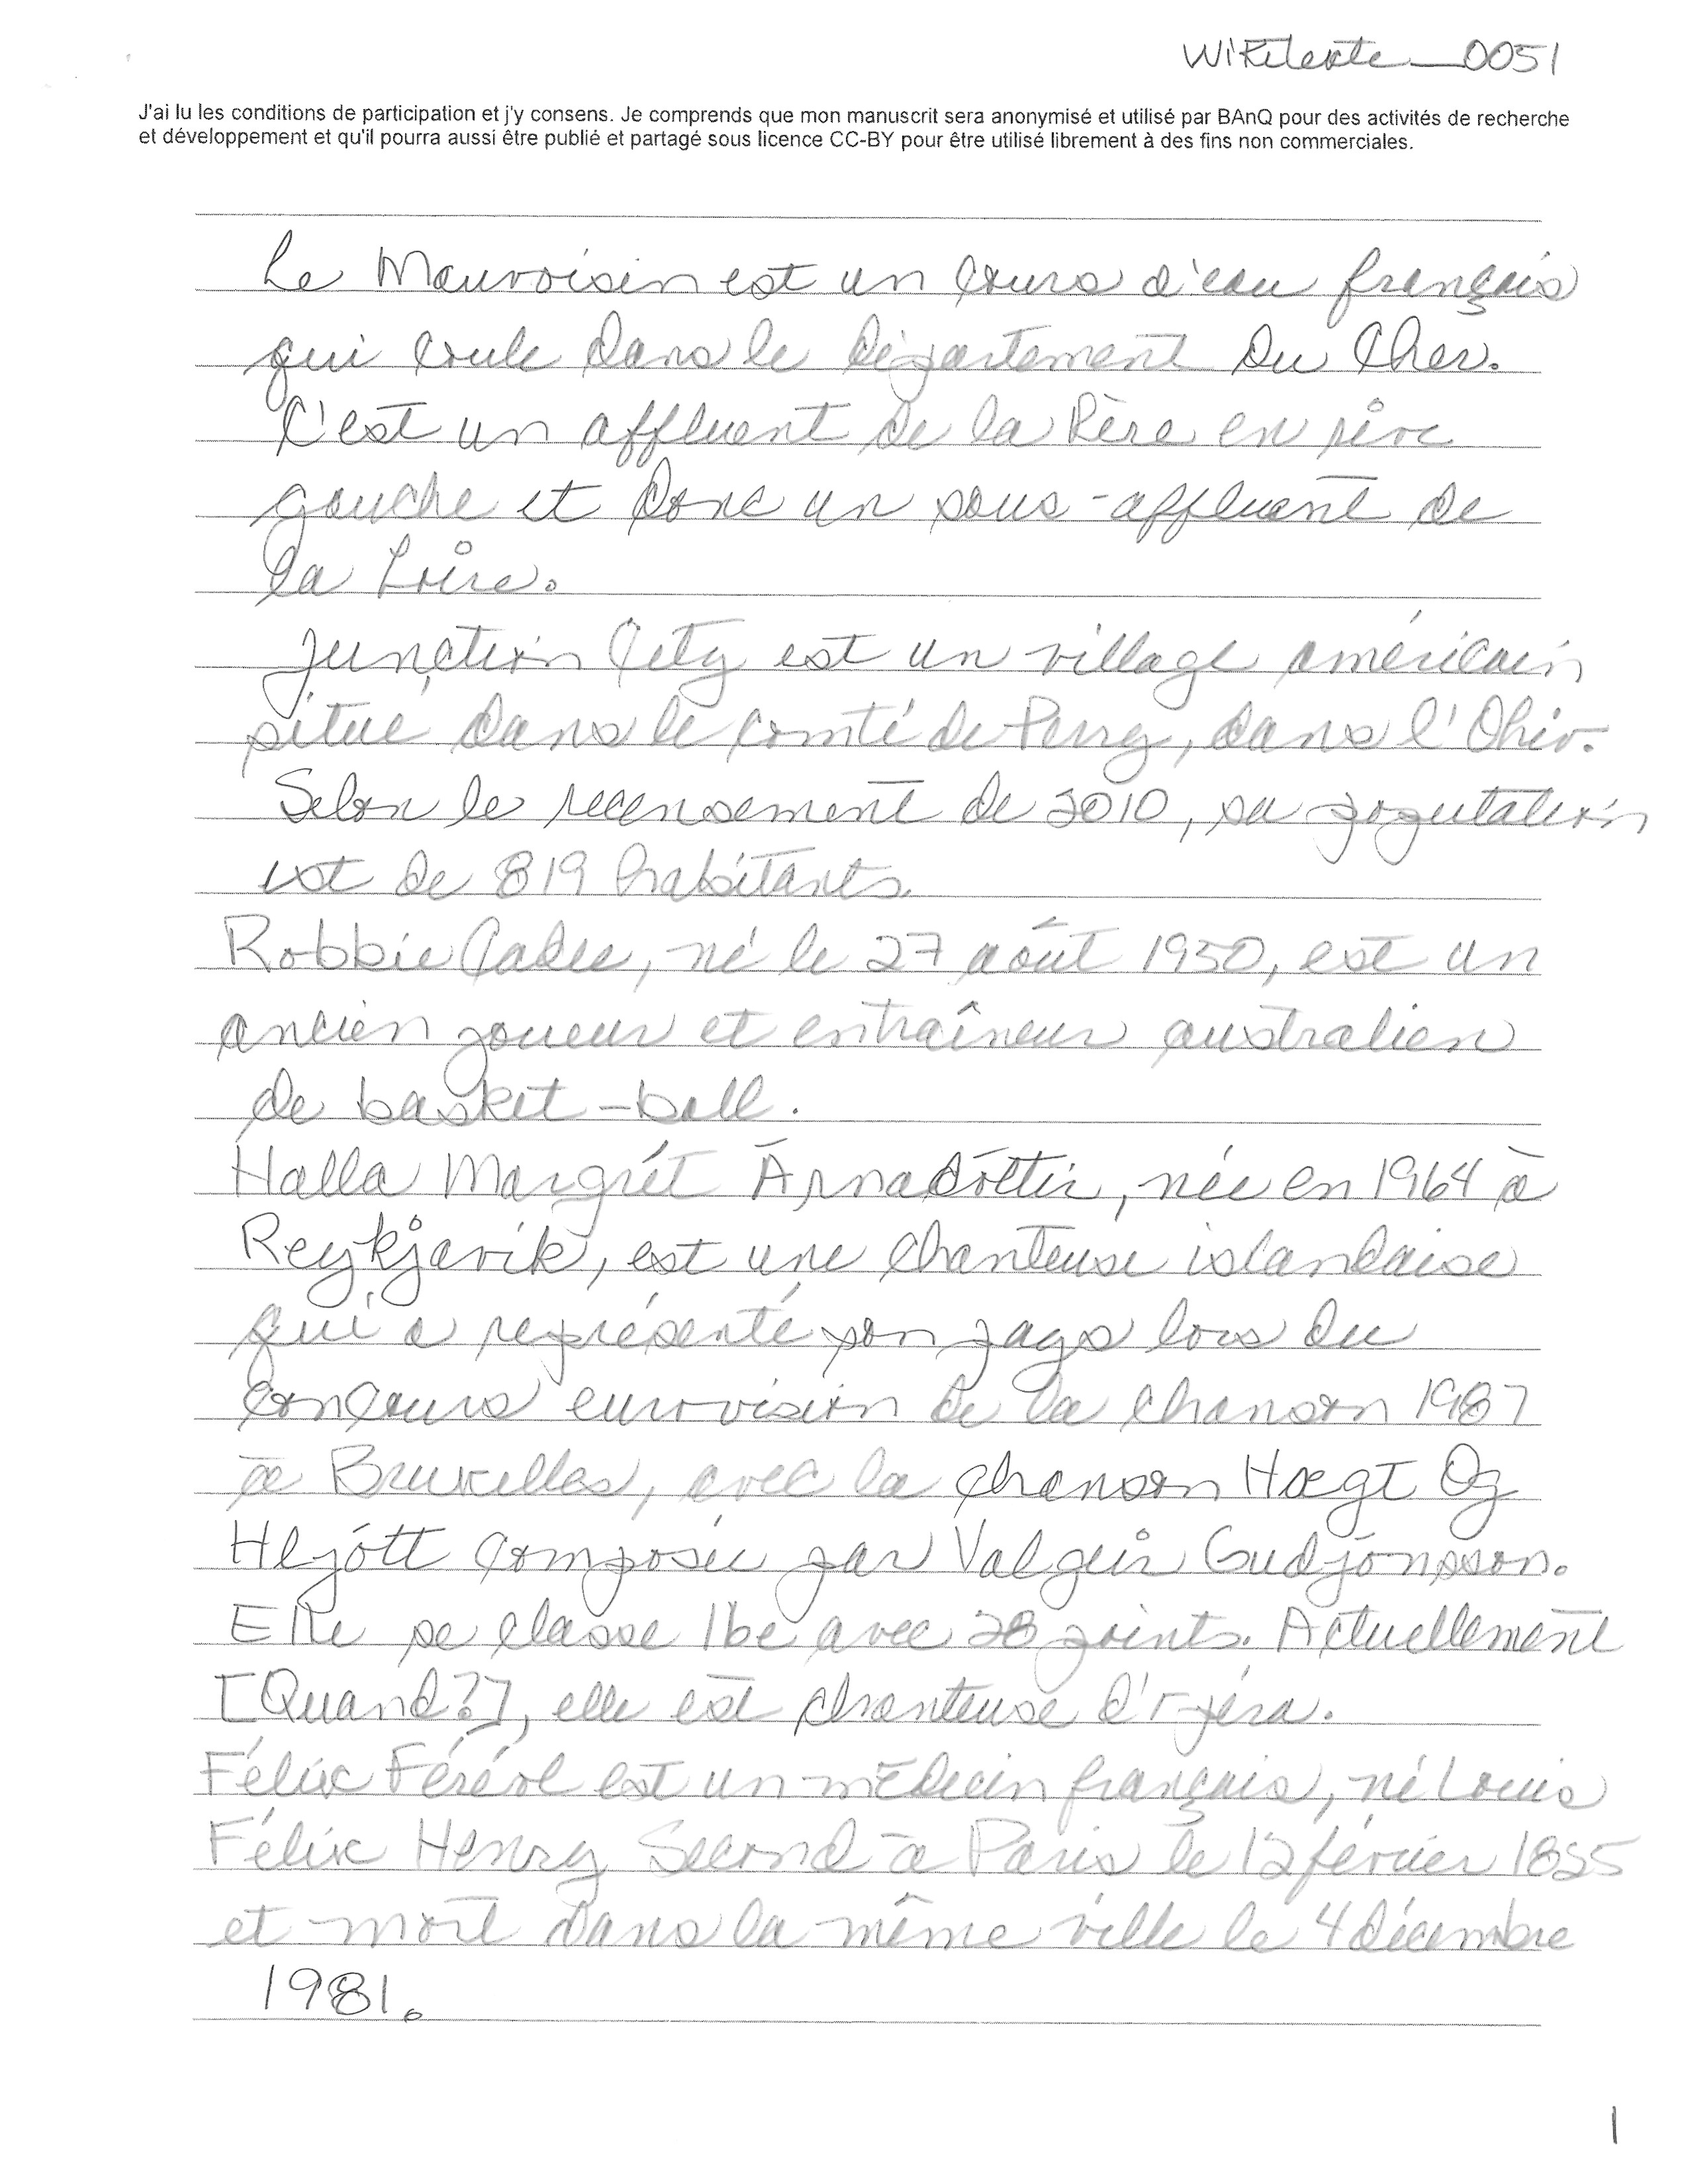 Wikitexte_0051
J'ai lu les conditions de participation et j'y consens. Je comprends que mon manuscrit sera anonymisé et utilisé par BAnQ pour des activités de recherche
et développement et qu'il pourra aussi être publié et partagé sous licence CC-BY pour être utilisé librement à des fins non commerciales.
Le Mauvoisin est un cours d'eau français
qui coule dans le département du Cher.
C'est un affluent de la Rère en rive
gauche et donc un sous-affluent de
la Loire.
Junction City est un village américain
situé dans le comté de Perry, dans l'Ohio.
Selon le recensement de 2010, sa population
est de 819 habitants.
Robbie Cadee, né le 27 août 1950, est un
ancien joueur et entraîneur australien
de basket-ball.
Halla Margrét Árnadóttir, née en 1964 à
Reykjavik, est une chanteuse islandaise
qui a représenté son pays lors du
concours eurovision de la chanson 1987
à Bruxelles, avec la chanson Hægt Og
Hljótt composée par Valgeir Gudjónsson.
Elle se classe 16e avec 28 points. Actuellement
[Quand?], elle est chanteuse d'opéra.
Félix Féréol est un médecin français, né Louis
Félix Henry Second à Paris le 12 février 1825
et mort dans la même ville le 4 décembre
1981.
1